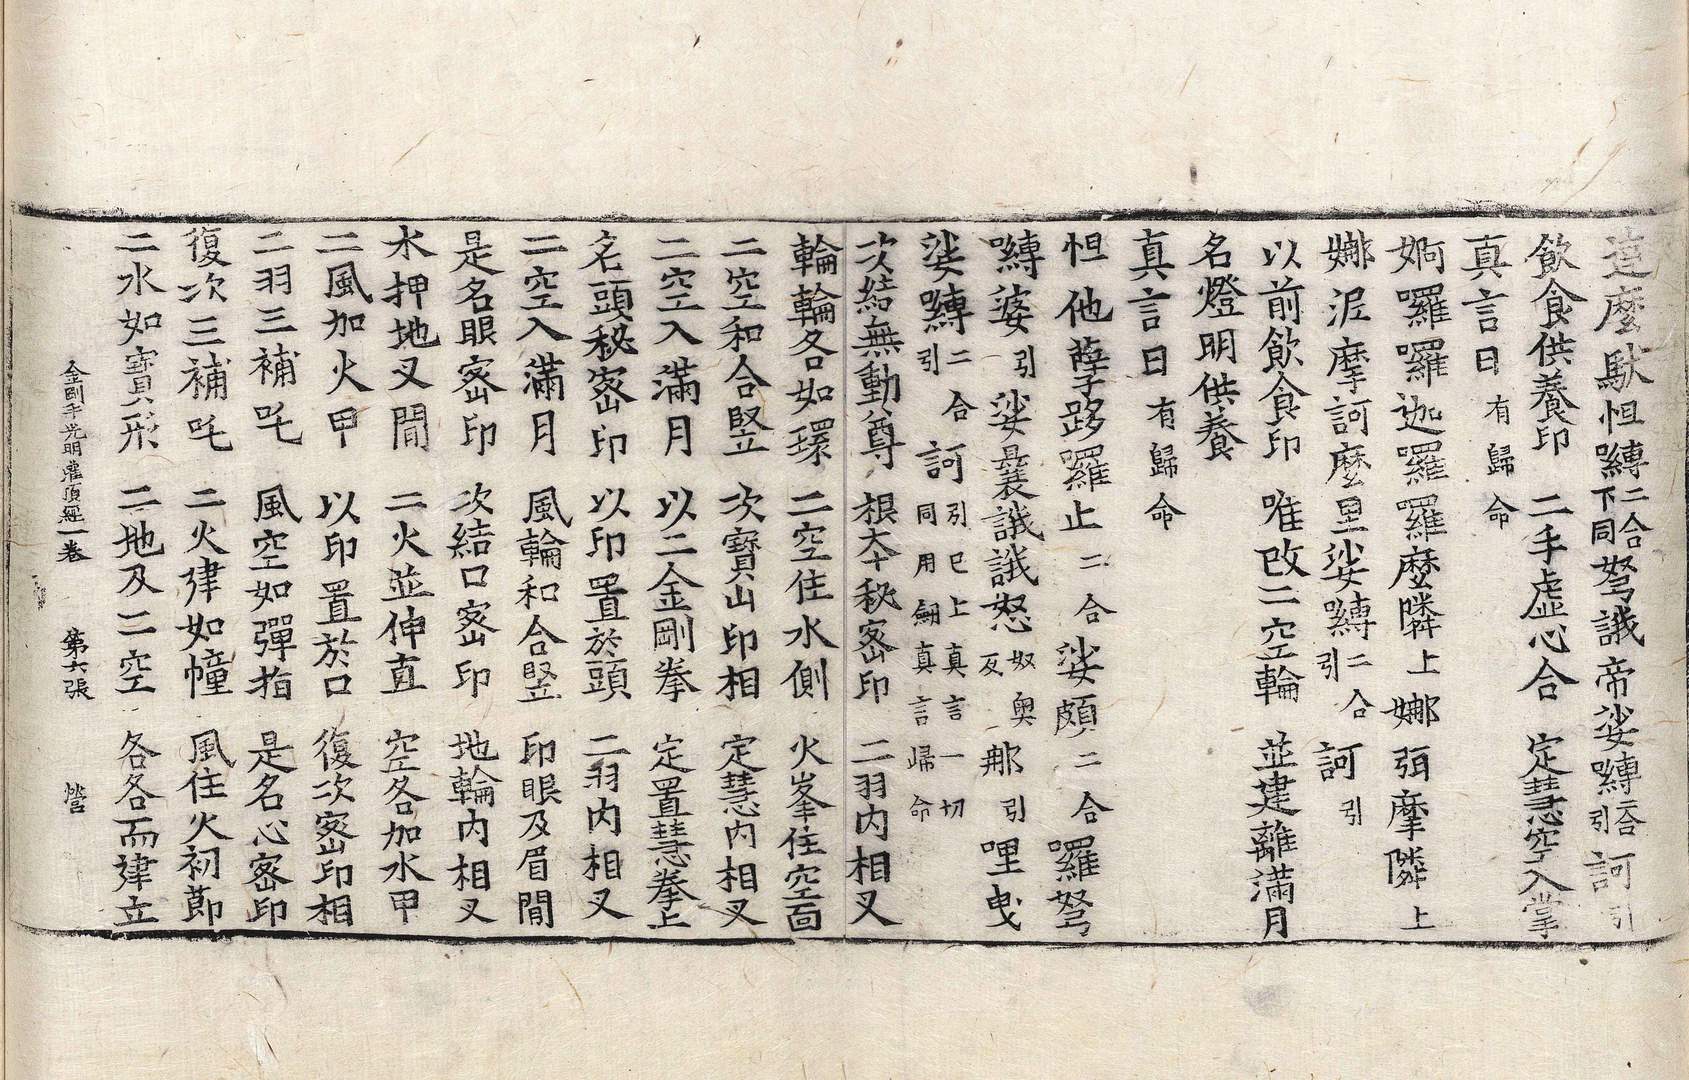 達麼馱怛嚩二合下同弩誐帝娑嚩二合引訶引
飲食供養印　二手虛心合　定慧空入掌
真言曰有歸命
婀囉囉迦囉囉麼隣上娜弭摩隣上
娜泥摩訶麼里娑嚩二合引訶引
以前飲食印　唯改二空輪　並建離滿月
名燈明供養
真言曰有歸命
怛他孽跢囉止二合娑頗二合囉弩
嚩婆引娑曩誐誐怒奴奧反那引哩曳
娑嚩二合引訶引已上真言一切同用劒真言歸命
次結無動尊　根本秘密印　二羽內相叉
輪輪各如環　二空住水側　火峯住空面
二空和合竪　次寶山印相　定慧內相叉
二空入滿月　以二金剛拳　定置慧拳上
名頭秘密印　以印置於頭　二羽內相叉
二空入滿月　風輪和合竪　印眼及眉間
是名眼密印　次結口密印　地輪內相叉
水押地叉間　二火並伸直　空各加水甲
二風加火甲　以印置於口　復次密印相
二羽三補吒　風空如彈指　是名心密印
復次三補吒　二火建如幢　風住火初節
二水如寶形　二地及二空　各各而建立
金剛手光明灌頂經一卷　第六張